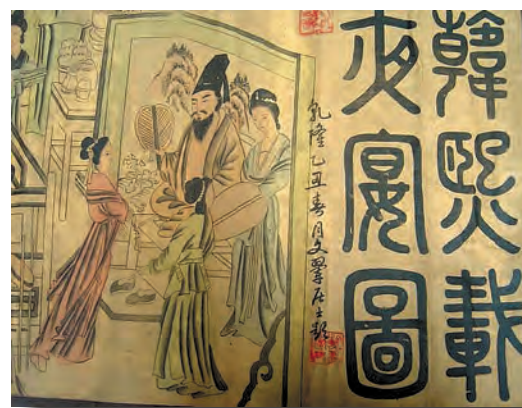 韓熙載
夜宴圖
乾隆乙丑春月文翠居士题